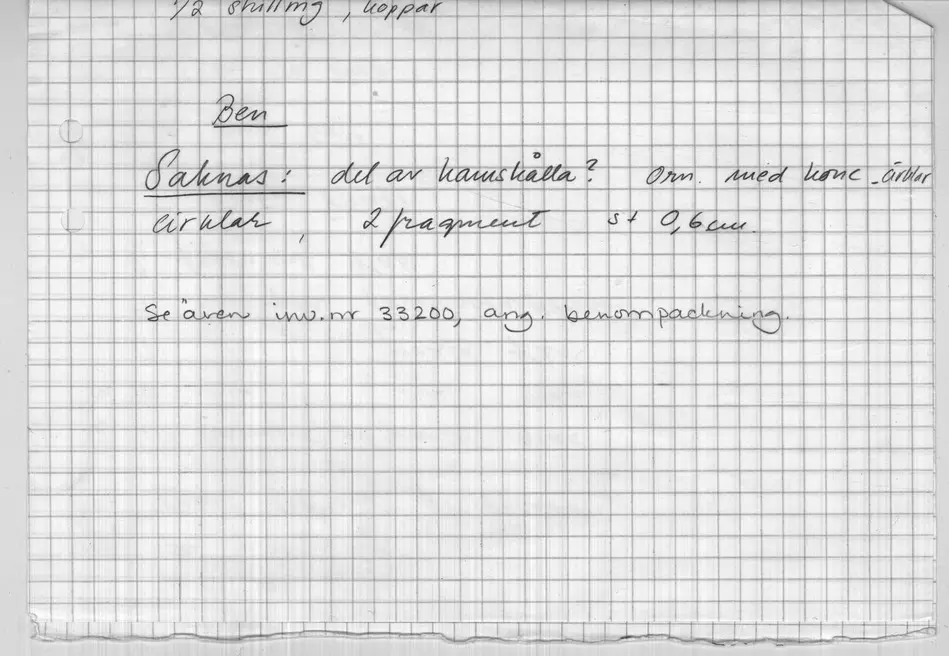 1/2 skilling, koppar
Ben
Saknas: del av kamskålla? Orn. med konc. cirklar
cirklar, 2 fragment st 0,6 cm.
Se även inv.nr 33200, ang. benompackning.